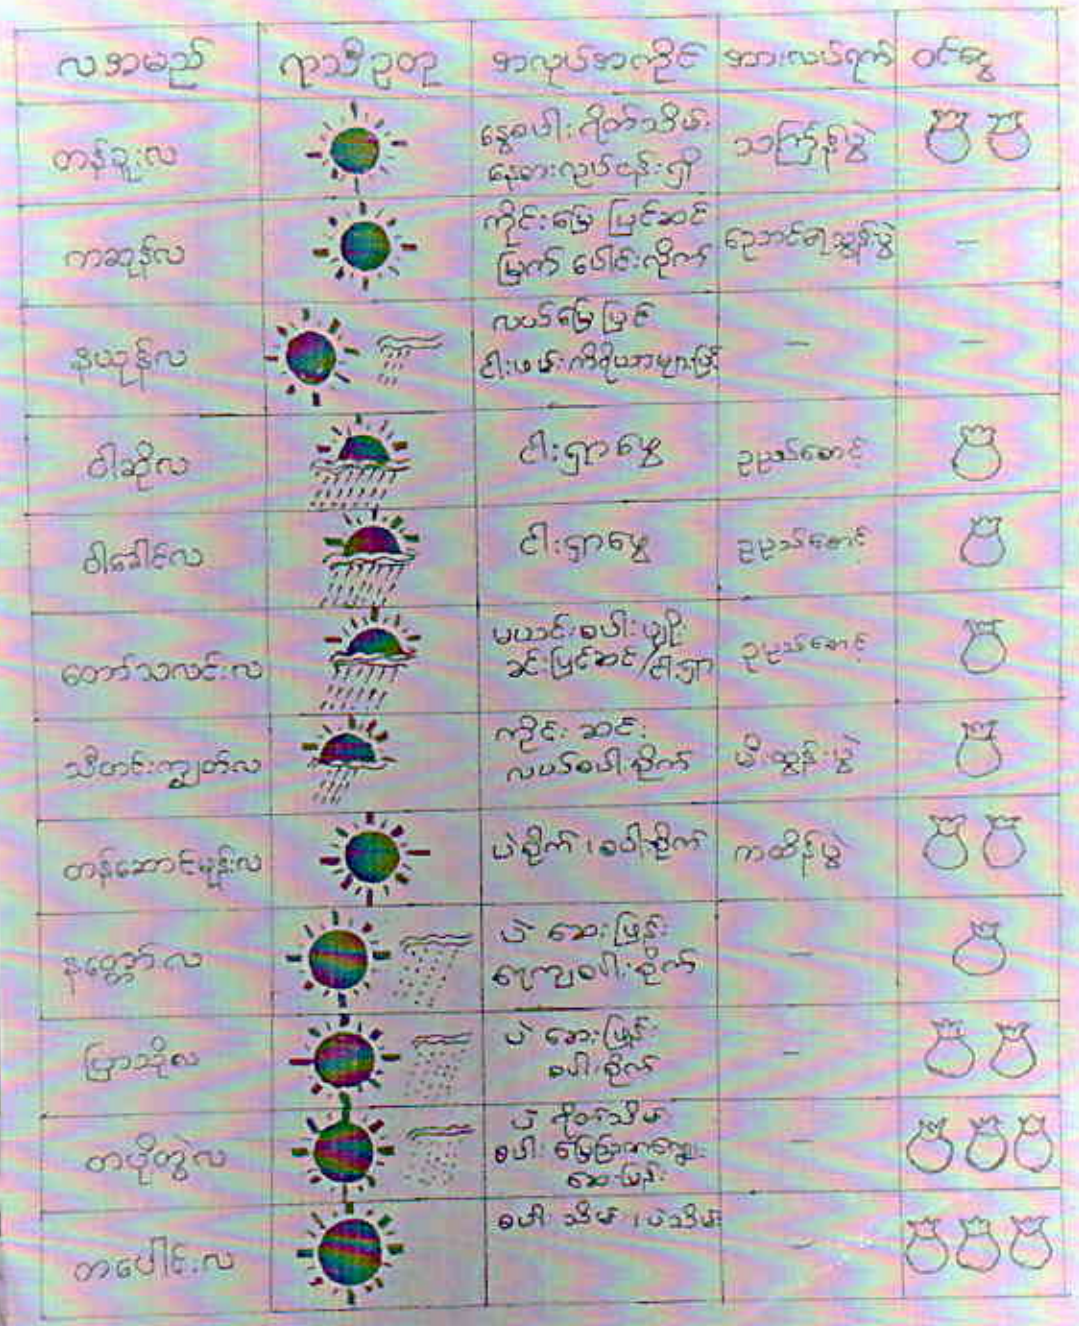 လအမည်
ရာသီဥတု
အလုပ်အကိုင်
အားလပ်ရက်
ဝင်ငွေ
တန်ခူးလ
နွေစပါး ရိတ်သိမ်း
နေ့စားလုပ်ငန်းရှိ
သင်္ကြန်ပွဲ
ကဆုန်လ
ကိုင်းမြေ ပြင်ဆင်
မြက် ပေါင်းလိုက်
ညောင်ရေသွန်းပွဲ
-
နယုန်လ
လယ်မြေ ပြင်
ငါးဖမ်းကိရိယာများပြင်
-
-
ဝါဆိုလ
ငါးရှာဖွေ
ဥပုသ်စောင့်
ဝါခေါင်လ
ငါးရှာဖွေ
ဥပုသ်စောင့်
တော်သလင်းလ
မယင်းစပါးပျိုး
ခင်းပြင်ဆင်/ငါးရှာ
ဥပုသ်စောင့်
သီတင်းကျွတ်လ
ကိုင်း ဆင်း
လယ်စပါးစိုက်
မီးထွန်းပွဲ
တန်ဆောင်မုန်းလ
ပဲစိုက်၊ စပါးစိုက်
ကထိန်ပွဲ
နတ်တော်လ
ပဲ ဆေးဖြန်း
ရေကျစပါးစိုက်
-
ပြာသိုလ
ပဲ ဆေးဖြန်း
စပါးစိုက်
-
တပို့တွဲလ
ပဲ ရိတ်သိမ်း
စပါး မြေသြဇာကျွေး
ဆေးဖြန်း
-
တပေါင်းလ
စပါး သိမ်း၊ ပဲသိမ်း
-